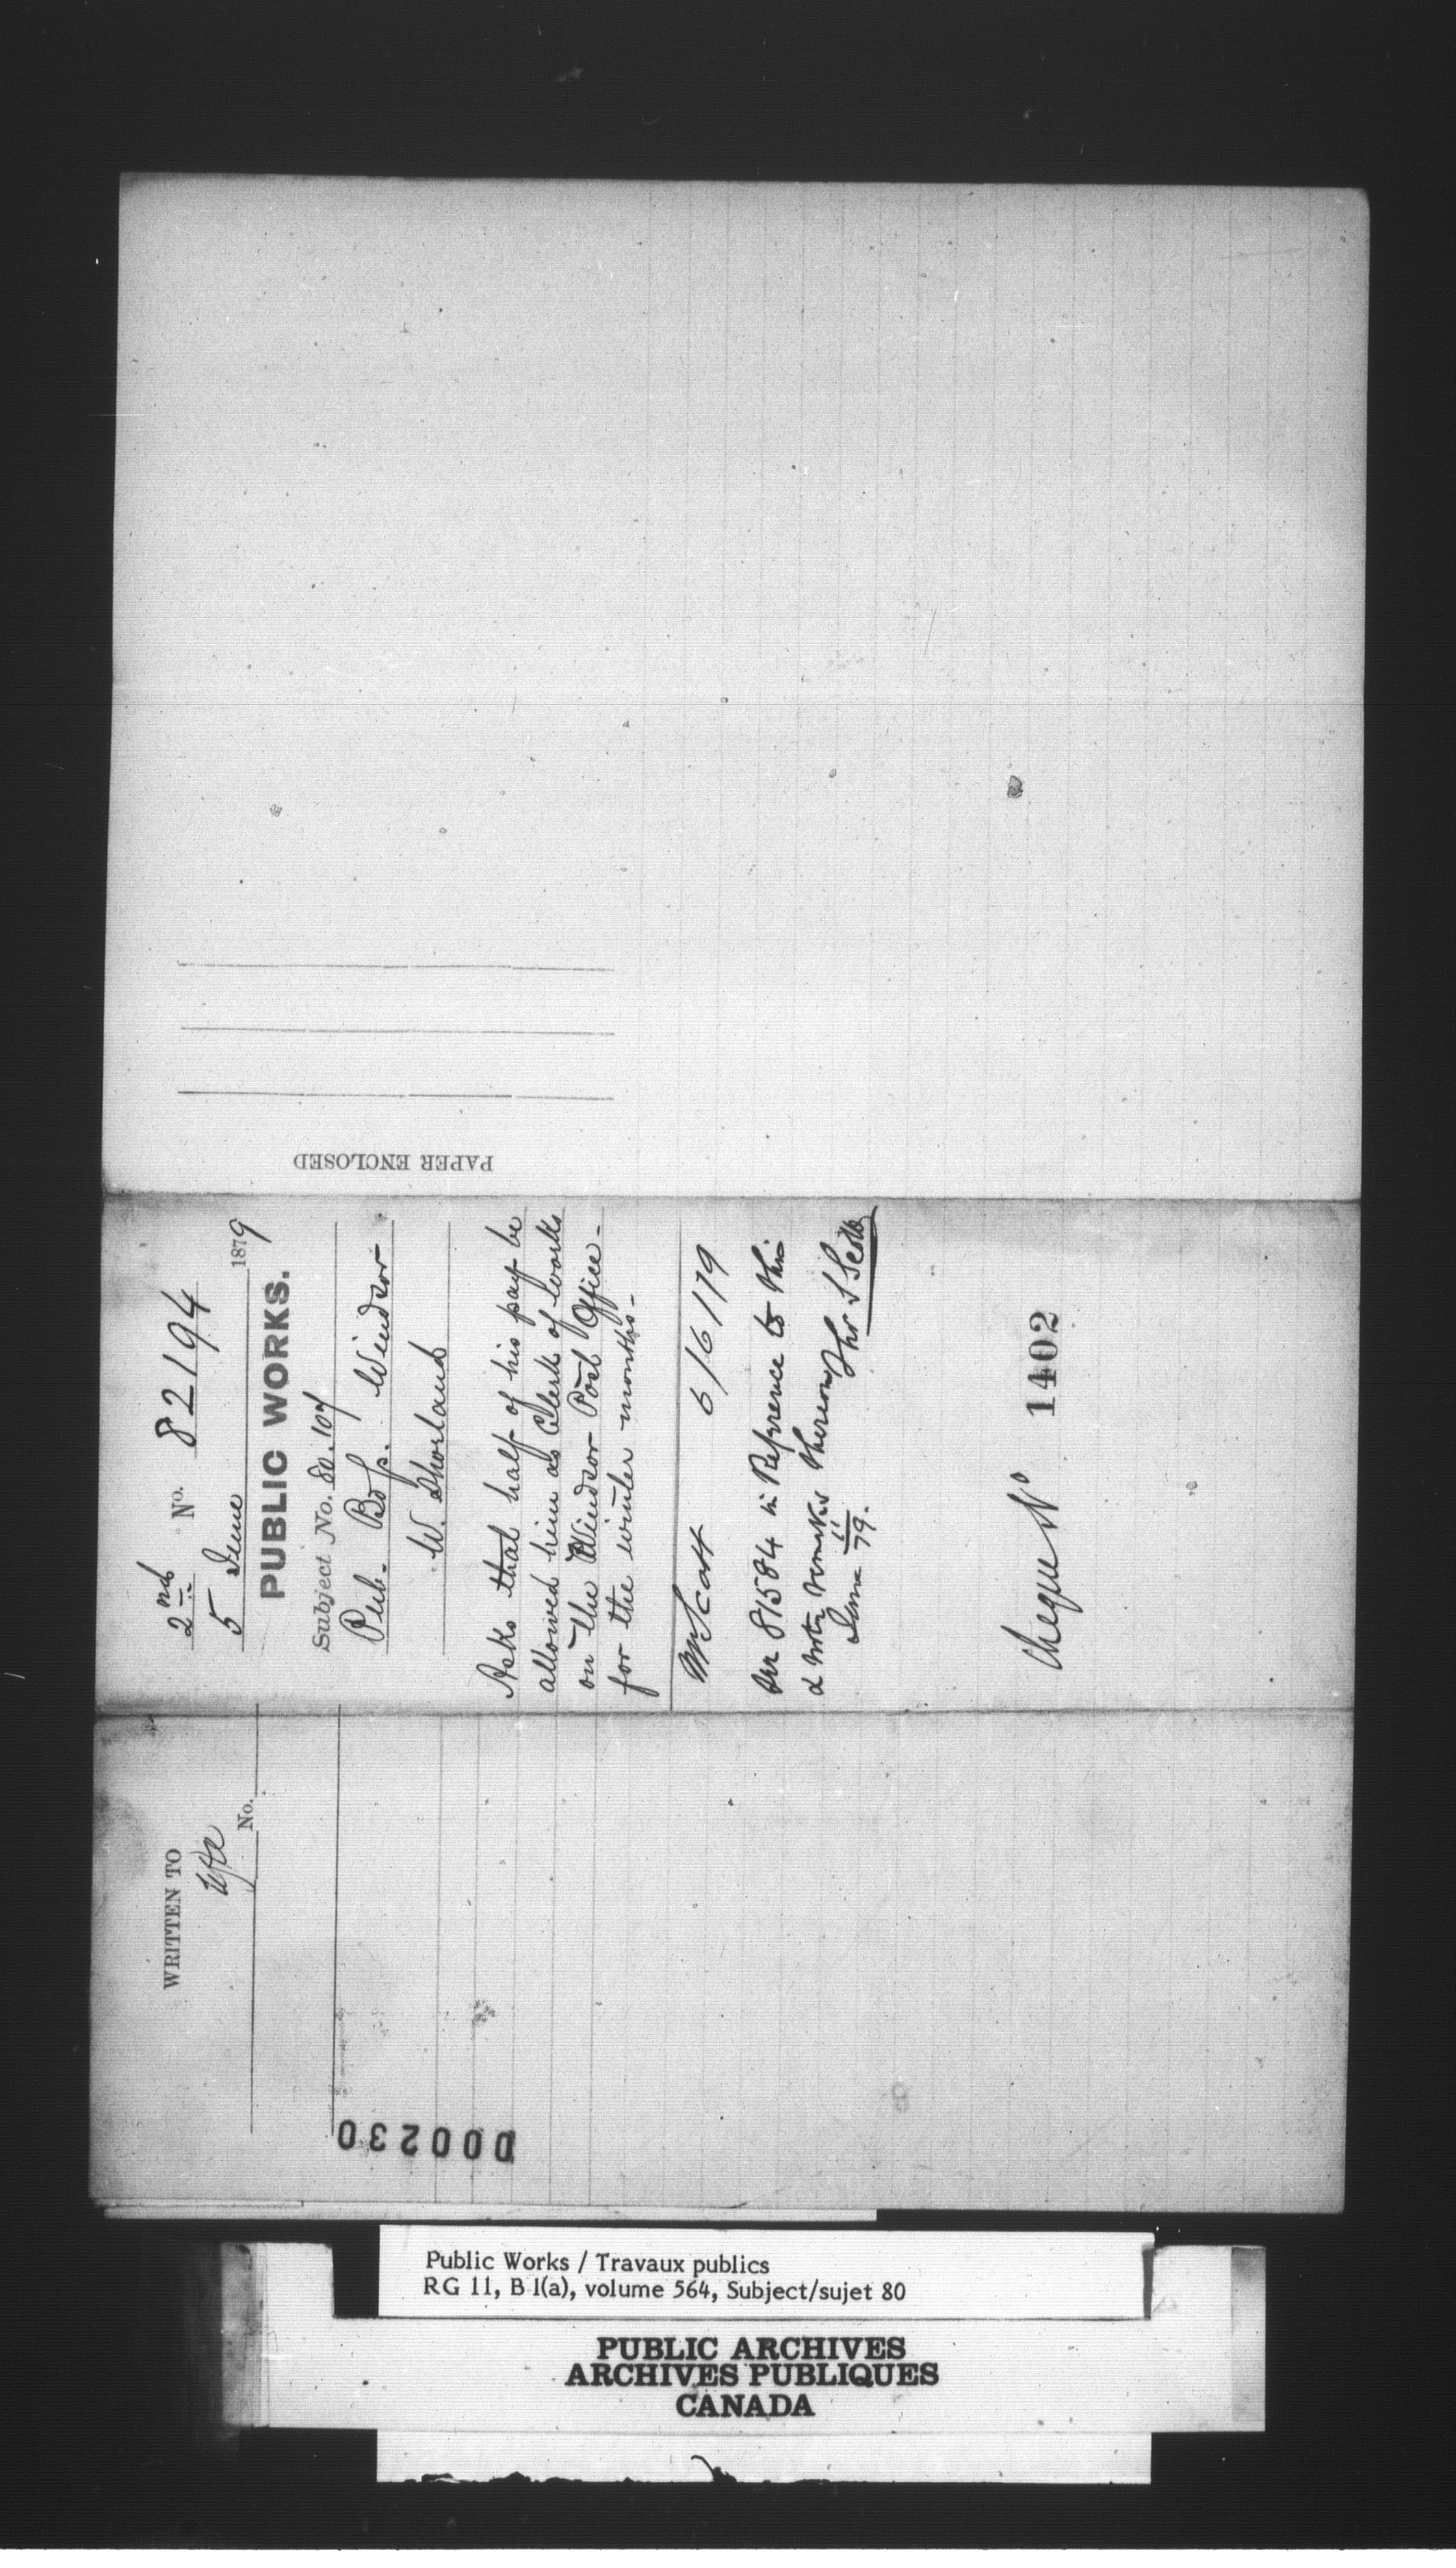 WRITTEN TO
No.
2nd No. 82194
5 June 1879
PUBLIC WORKS.
Subject No. 80.107
Pub. Bdgs. Windsor
W. Shorland
Asks that half of his pay be
allowed him as Clerk of works
on the Windsor Post Office -
for the winter months -
Mr Scott 6/6/79
See 81584 in Reference to this
& note remarks thereon Thos S Scott
June 11 79.
Cheque No 1402
PAPER ENCLOSED
D00230
Public Works / Travaux publics
RG 11, B 1(a), volume 564, Subject/sujet 80
PUBLIC ARCHIVES
ARCHIVES PUBLIQUES
CANADA